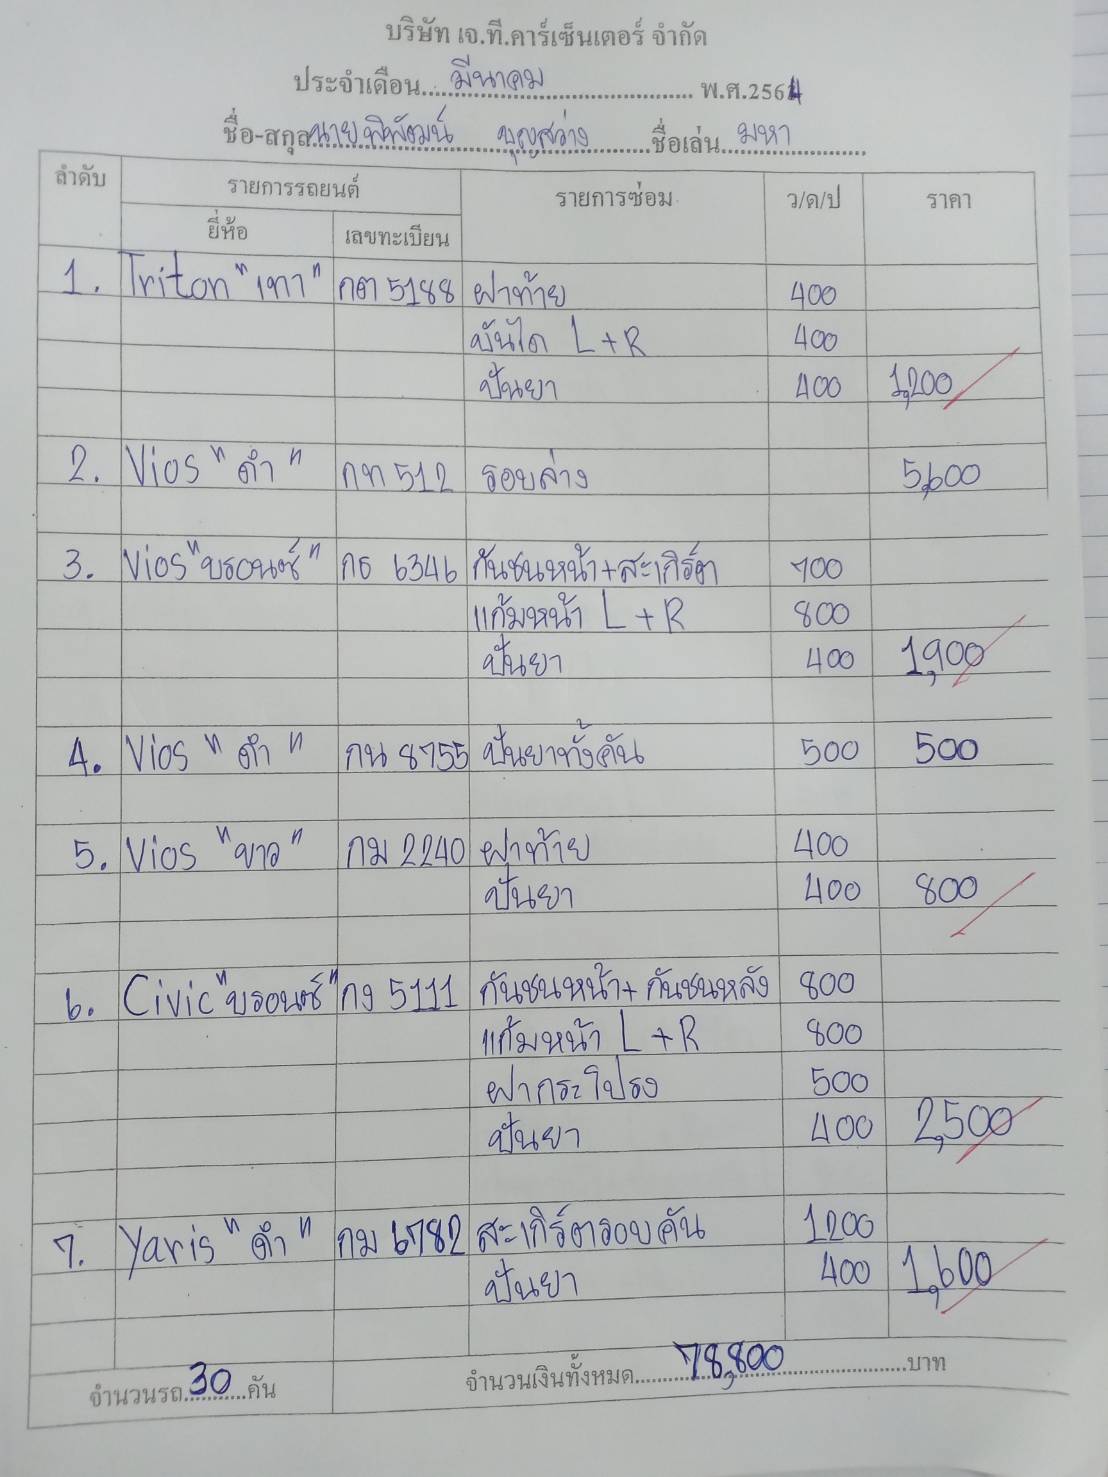 บริษัท เจ.ที.คาร์เซ็นเตอร์ จำกัด
ประจำเดือน....มีนาคม.... พ.ศ.2564
ชื่อ-สกุล นายพิพัฒน์ บุญสว่าง ชื่อเล่น มหา
ลำดับ รายการรถยนต์ รายการซ่อม ว/ด/ป ราคา
ยี่ห้อ เลขทะเบียน
1. Triton "เทา" กต 5188 ฝาท้าย 400
บันได L+R 400
ปั่นยา 400 1,200
2. Vios "ดำ" กท 512 รอบล่าง 5,600
3. Vios "บรอนซ์" กธ 6346 กันชนหน้า+สะเกิร์ต 700
แก้มหน้า L+R 800
ปั่นยา 400 1,900
4. Vios "ดำ" กน 8755 ปั่นยาทั้งคัน 500 500
5. Vios "ขาว" กม 2240 ฝาท้าย 400
ปั่นยา 400 800
6. Civic "บรอนซ์" กง 5111 กันชนหน้า+กันชนหลัง 800
แก้มหน้า L+R 800
ฝากระโปรง 500
ปั่นยา 400 2,500
7. Yaris "ดำ" กม 6782 สะเกิร์ตรอบคัน 1200
ปั่นยา 400 1,600
จำนวนรถ...30...คัน จำนวนเงินทั้งหมด....78,800....บาท